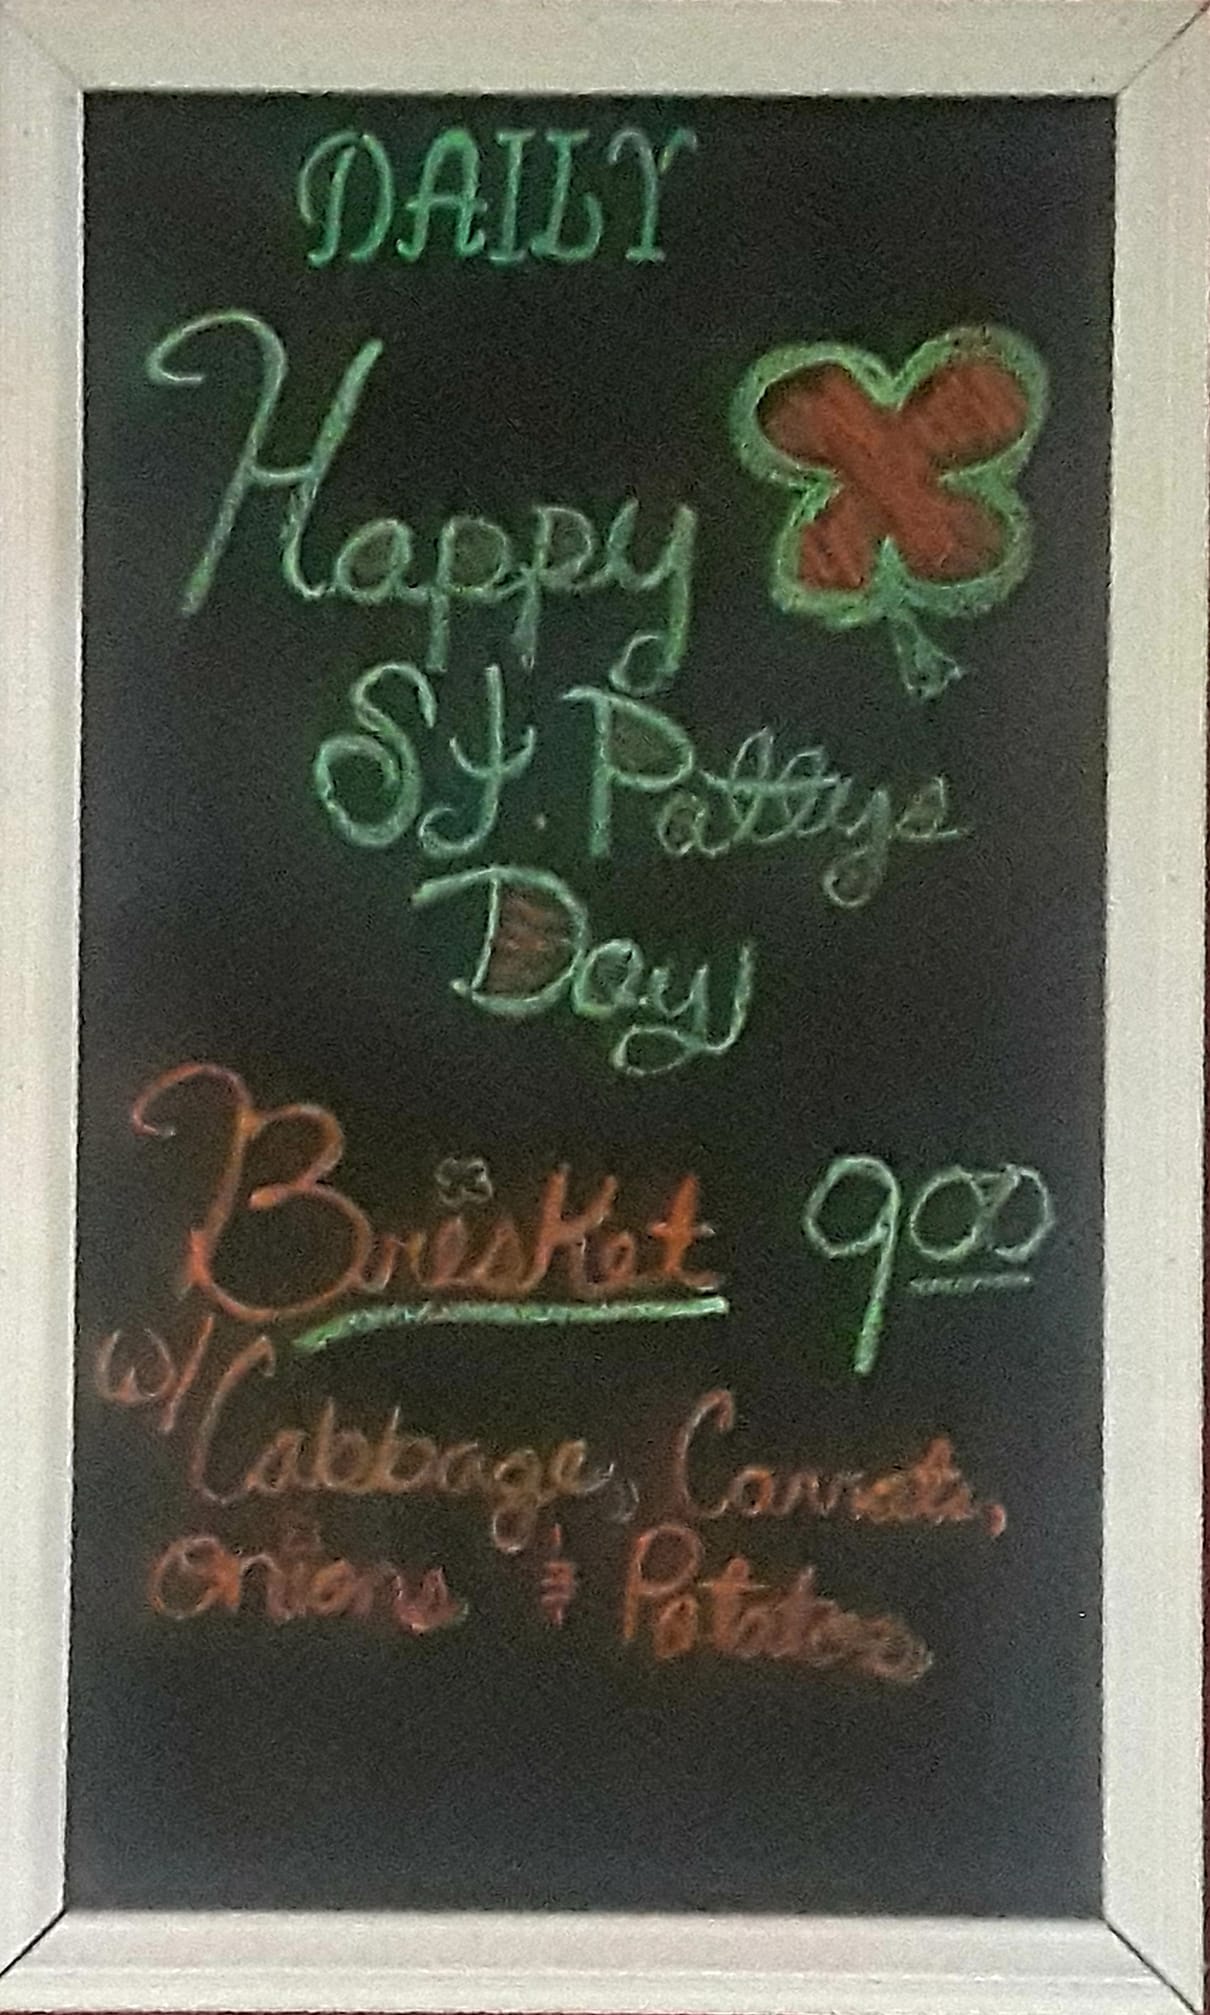 DAILY
Happy
St. Pattys
Day
Brisket 900
w/ Cabbage, Carrots,
Onions & Potatoes